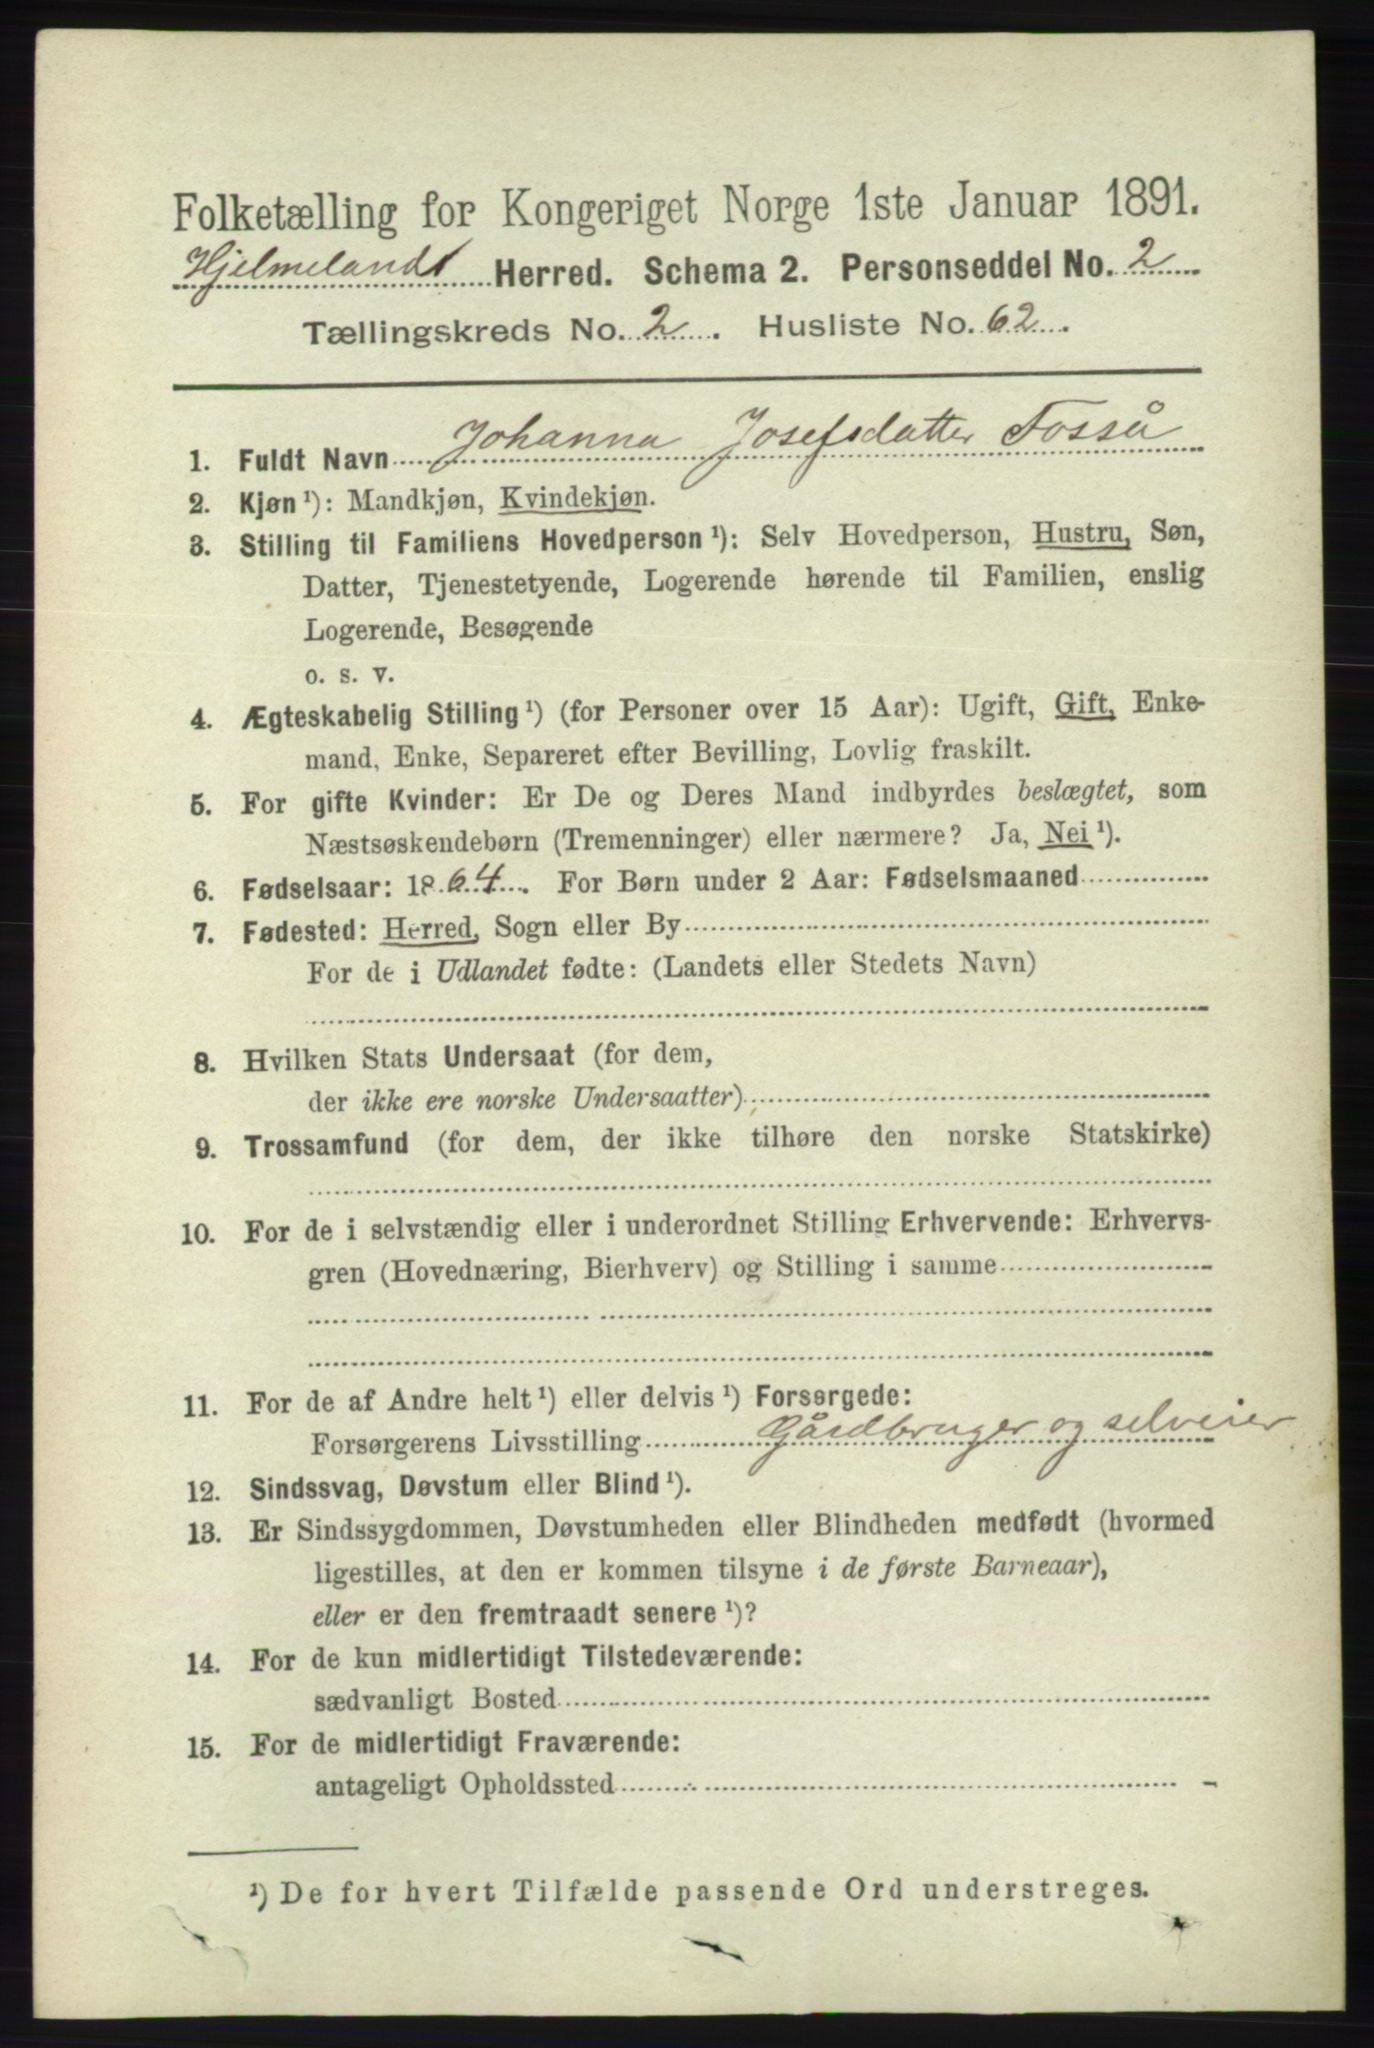 Folketælling for Kongeriget Norge 1ste Januar 1891.
Hjelmelands Herred. Schema 2. Personseddel No. 2
Tællingskreds No. 2. Husliste No. 62.
1. Fuldt Navn Johanna Josefsdatter Fosså
2. Kjøn ¹): Mandkjøn, Kvindekjøn.
3. Stilling til Familiens Hovedperson ¹): Selv Hovedperson, Hustru, Søn,
Datter, Tjenestetyende, Logerende hørende til Familien, enslig
Logerende, Besøgende
o. s. v.
4. Ægteskabelig Stilling ¹) (for Personer over 15 Aar): Ugift, Gift, Enke-
mand, Enke, Separeret efter Bevilling, Lovlig fraskilt.
5. For gifte Kvinder: Er De og Deres Mand indbyrdes beslægtet, som
Næstsøskendebørn (Tremenninger) eller nærmere? Ja, Nei ¹).
6. Fødselsaar: 1864. For Børn under 2 Aar: Fødselsmaaned
7. Fødested: Herred, Sogn eller By
For de i Udlandet fødte: (Landets eller Stedets Navn)
8. Hvilken Stats Undersaat (for dem,
der ikke ere norske Undersaatter)
9. Trossamfund (for dem, der ikke tilhøre den norske Statskirke)
10. For de i selvstændig eller i underordnet Stilling Erhvervende: Erhvervs-
gren (Hovednæring, Bierhverv) og Stilling i samme
11. For de af Andre helt ¹) eller delvis ¹) Forsørgede:
Forsørgerens Livsstilling Gårdbruger og selveier
12. Sindssvag, Døvstum eller Blind ¹).
13. Er Sindssygdommen, Døvstumheden eller Blindheden medfødt (hvormed
ligestilles, at den er kommen tilsyne i de første Barneaar),
eller er den fremtraadt senere ¹)?
14. For de kun midlertidigt Tilstedeværende:
sædvanligt Bosted
15. For de midlertidigt Fraværende:
antageligt Opholdssted
¹) De for hvert Tilfælde passende Ord understreges.